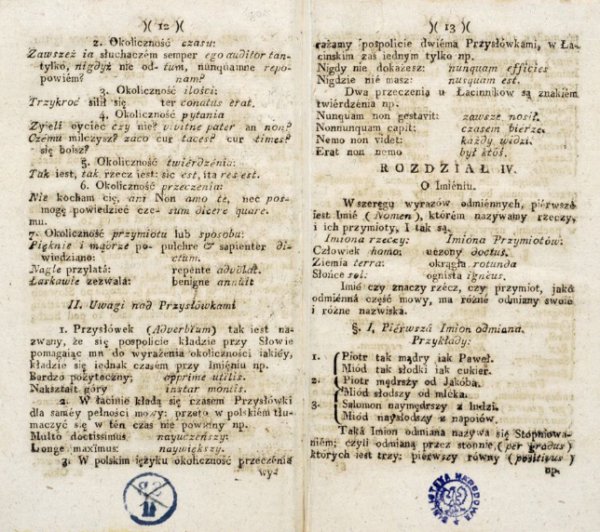 )( 12 )(
2. Okoliczność czasu:
Zawszeż ia słuchaczem semper ego auditor tan-
tylko, nigdyż nie od- tum, nunquamne repo-
powiém? nam?
3. Okoliczność ilości:
Trzykroć silił się ter conatus erat.
4. Okoliczność pytania
Żyieli oyciec czy nie? vivitne pater an non?
Czému milczysz? zaco cur taces? cur times?
się boisz?
5. Okoliczność twiérdzenia:
Tak iest, tak rzecz iest: sic est, ita res est.
6. Okoliczność przeczenia:
Nie kocham cię, ani Non amo te, nec pos-
mogę powiedzieć cze- sum dicere quare.
mu.
7. Okoliczność przymiotu lub sposobu:
Pięknie i mądrze po- pulchre & sapienter di-
wiedziano: ctum.
Nagle przylatá: repente advolat.
Łaskawie zezwalá: benigne annuit
II. Uwagi nad Przysłówkami
1. Przysłówek (Adverbium) tak iest na-
zwany, że się pospolicie kładzie przy Słowie
pomagaiąc mu do wyrażenia okoliczności iakiéy,
kładzie się iednak czasem przy Imięniu np.
Bardzo pożyteczny: apprime utilis.
Nakształt góry instar montis.
2. W łacinie kładą się czasem Przysłówki
dla saméy pełności mowy: przeto w polskiém tłu-
maczyć się w ten czas nie powinny np.
Multo doctissimus nayuczeńszy:
Longe maximus: naywiększy.
3. W polskim ięzyku okoliczność przeczenia
wyż
)( 13 )(
rażamy pospolicie dwiéma Przysłówkami, w Ła-
cinskim zaś iednym tylko np.
Nigdy nie dokażesz: nunquam efficies
Nigdzie nie masz: nusquam est.
Dwa przeczenia u Łacinników są znakiem
twiérdzenia np.
Nunquam non gestavit: zawsze nosił.
Nonnunquam capit: czasem bierze.
Nemo non videt: każdy widzi.
Erat non nemo był ktoś.
ROZDZIAŁ IV.
O Imięniu.
W szeręgu wyrazów odmiénnych, piérwszé
iest Imié (Nomen), którém nazywamy rzeczy,
i ich przymioty, I tak są.
Imiona rzeczy: Imiona Przymiotów:
Człowiek homo: uczony doctus.
Ziemia terra: okrągła rotunda
Słońce sol: ognista igneus.
Imié czy znaczy rzécz, czy przymiot, jako
odmiénná część mowy, ma różne odmiany swoie
i różne nazwiska.
§. I, Piérwszá Imion odmiana.
Przykłady:
1. Piotr tak mądry iak Paweł.
Miód tak słodki iak cukier.
2. Piotr mędrszy od Jakóba.
Miód słodszy od mléka.
3. Salomon naymędrszy z ludzi.
Miód naysłodszy z napoiów.
Taká Imion odmiana nazywa się Stopniowa-
niém; czyli odmianą przez stopnie, (per gradus)
których iest trzy: piérwszy równy (positivus)
np.
BIBLIOTEKA NARODOWA